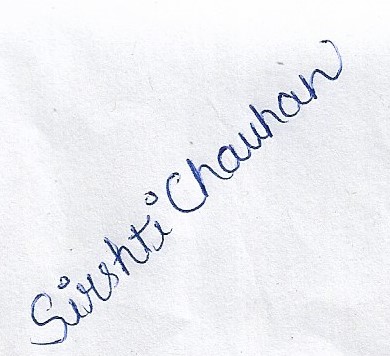 Sirshti Chauhan